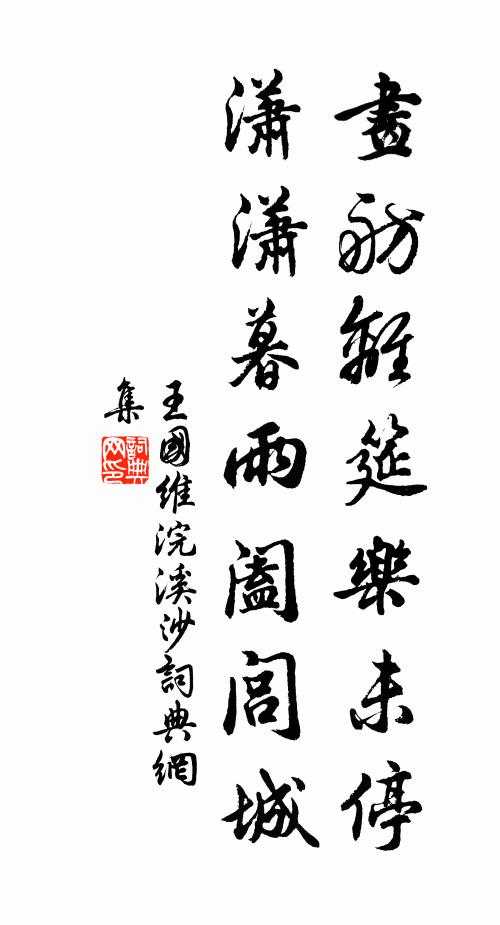 畫舫離筵樂未停
瀟瀟暮雨闔閭城
王國維浣溪沙詞典網
集
詞典網印